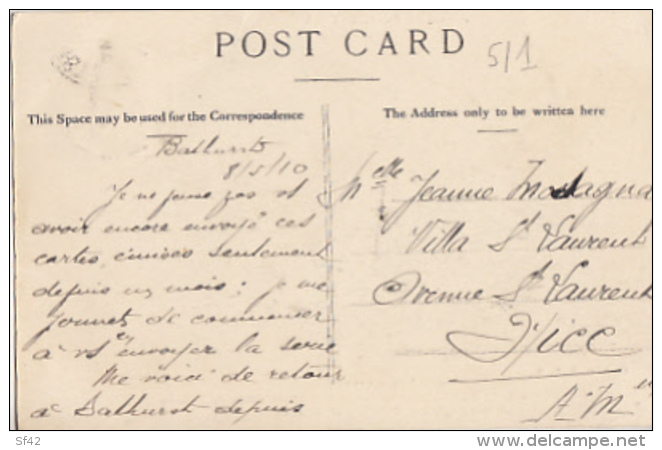 POST CARD
5/1
This Space may be used for the Correspondence
The Address only to be written here
Bathurst
8/5/10
Je ne pense pas
avoir encore envoyé ces
cartes, émises seulement
depuis un mois; je me
permets de commencer
à vs en envoyer la série
Me voici de retour
à Bathurst depuis
Melle Jeanne
Villa St Laurent
Avenue St Laurent
Nice
A. M.
Sf42
www.delcampe.net